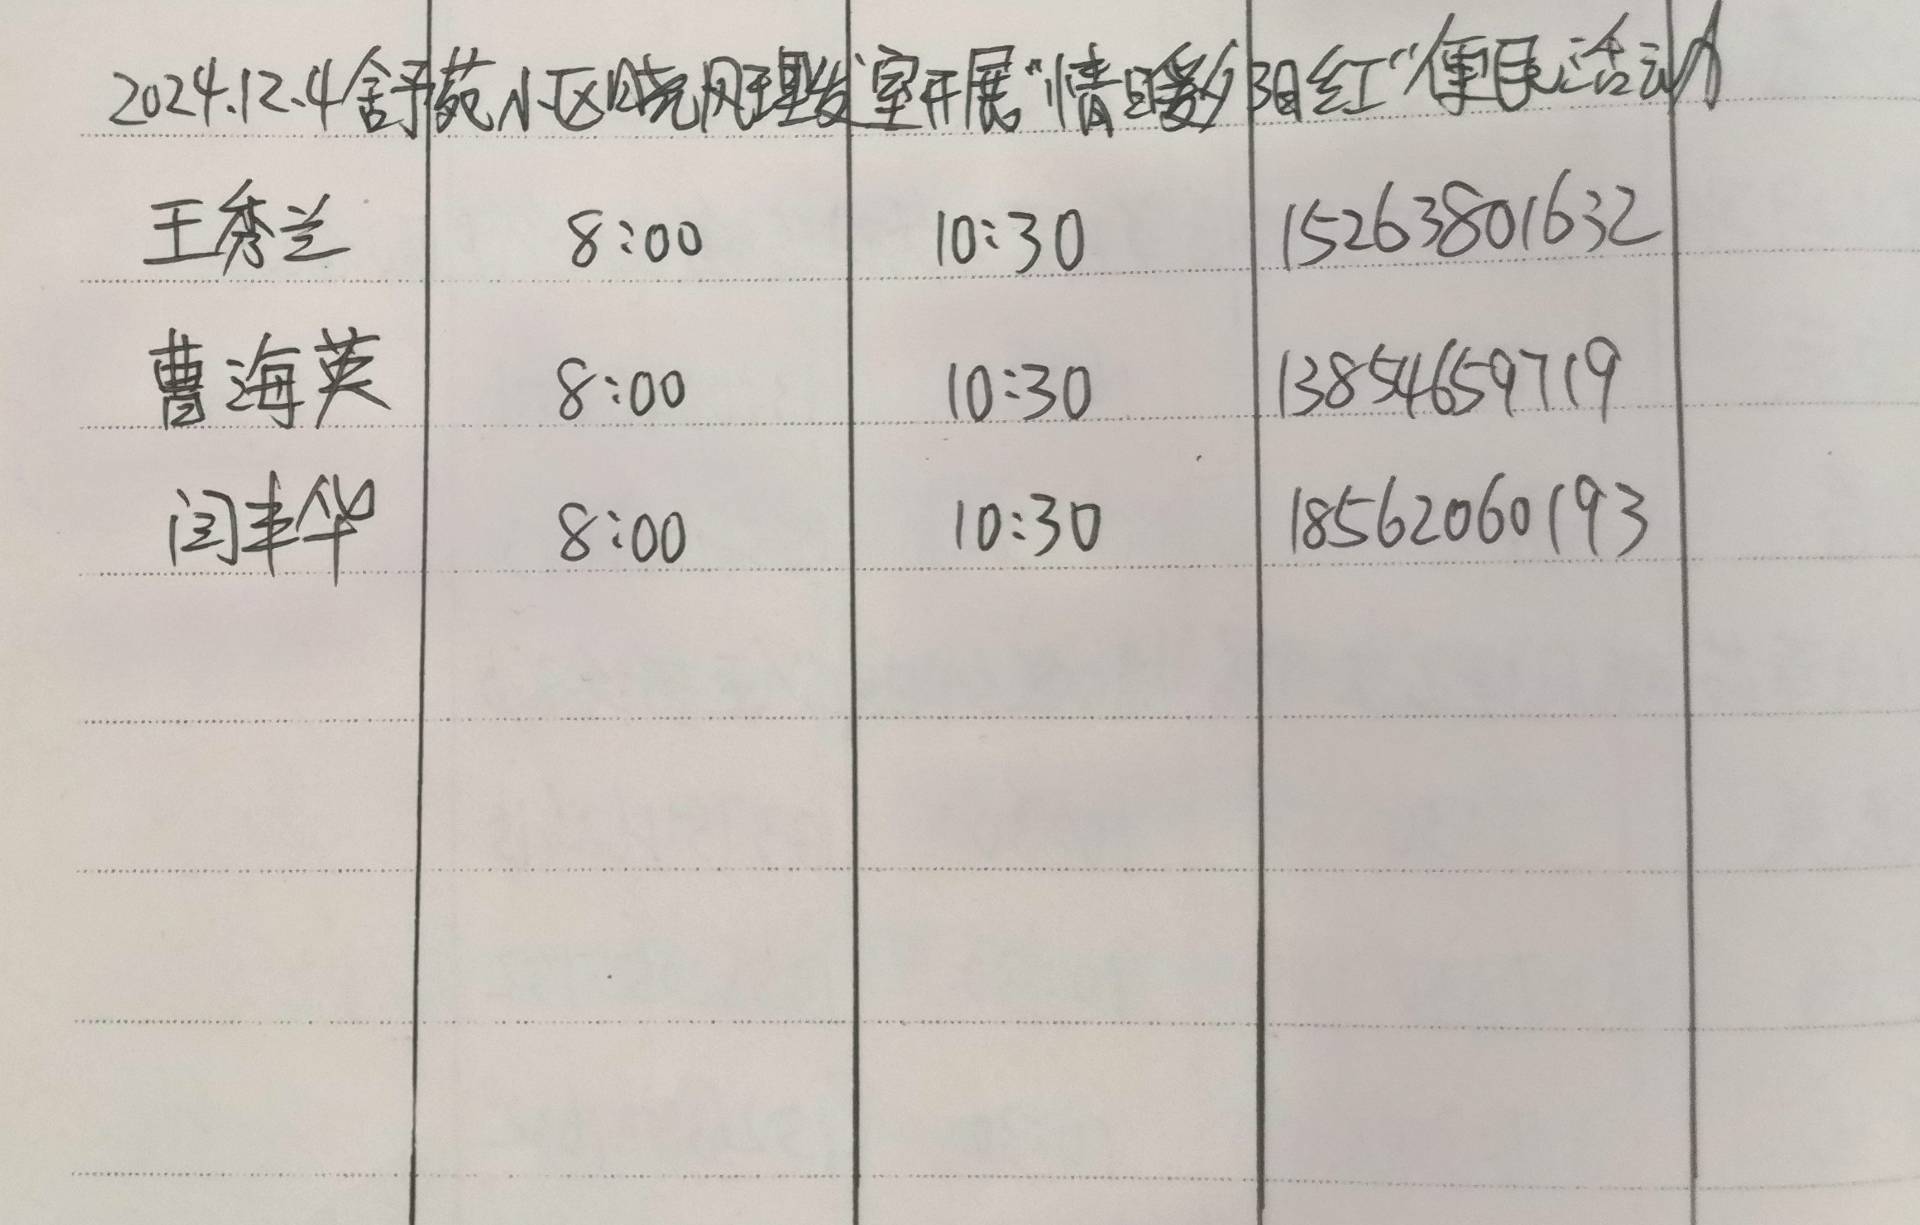 2024.12.4舒苑小区晓风理发室开展“情暖夕阳红”便民活动
王秀兰 8:00 10:30 15263801632
曹海英 8:00 10:30 13854659719
闫丰华 8:00 10:30 18562060193